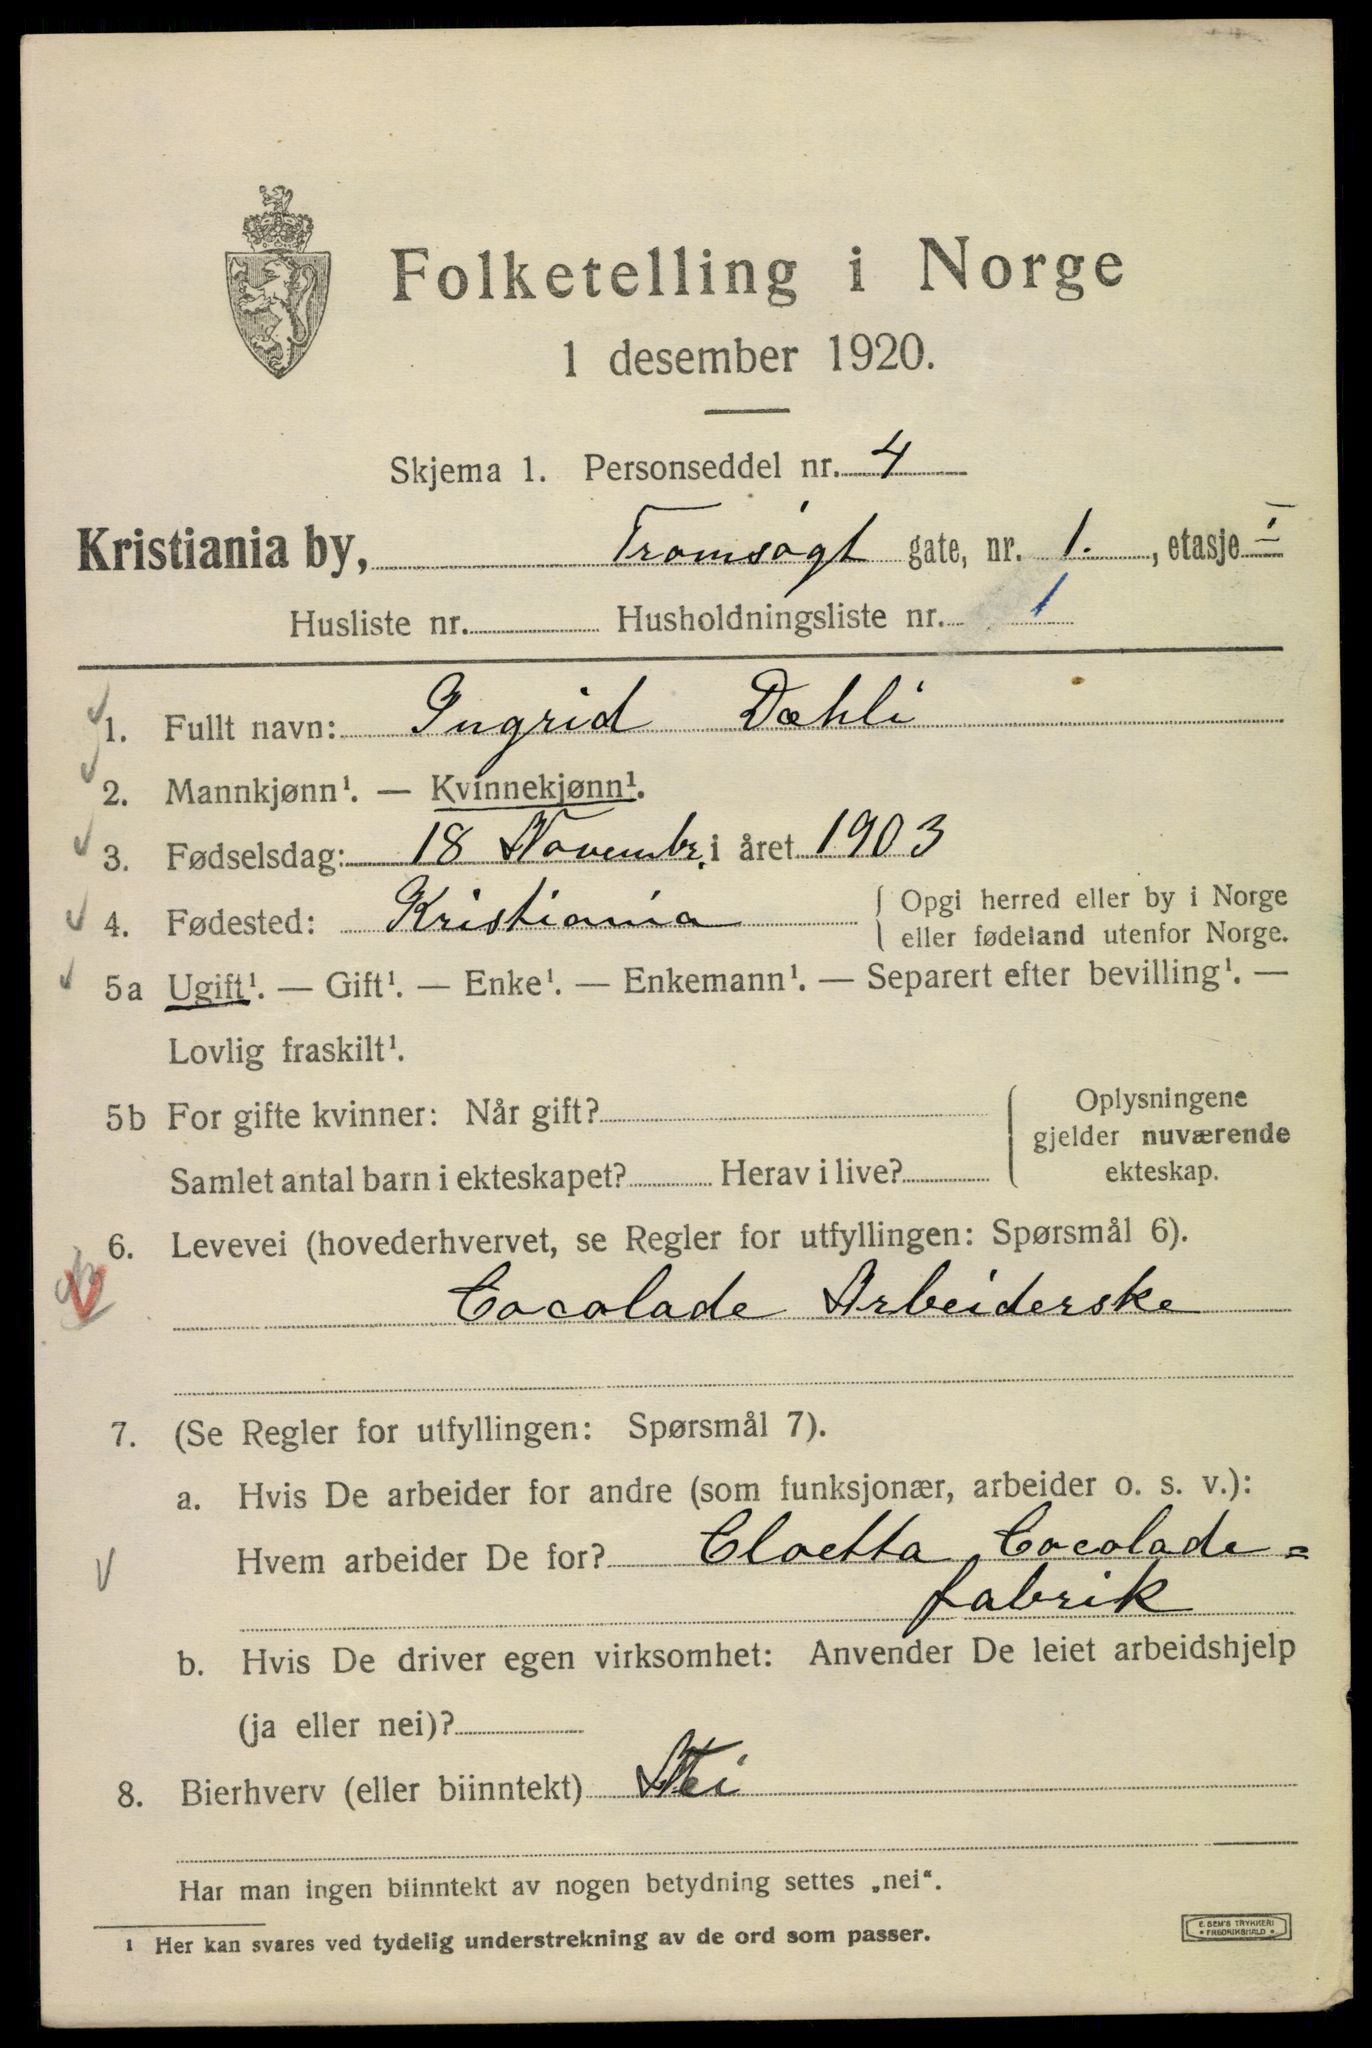 Folketelling i Norge
1 desember 1920.
Skjema 1. Personseddel nr. 4
Kristiania by, Tromsøgt gate, nr. 1., etasje I
Husliste nr. Husholdningsliste nr. 1
1. Fullt navn: Ingrid Dæhli
2. Mannkjønn¹. — Kvinnekjønn¹.
3. Fødselsdag: 18 Novembr. i året 1903
4. Fødested: Kristiania { Opgi herred eller by i Norge
eller fødeland utenfor Norge.
5a Ugift¹. — Gift¹. — Enke¹. — Enkemann¹. — Separert efter bevilling¹. —
Lovlig fraskilt¹.
5b For gifte kvinner: Når gift?
Samlet antal barn i ekteskapet? Herav i live?
Oplysningene
gjelder nuværende
ekteskap.
6. Levevei (hovederhvervet, se Regler for utfyllingen: Spørsmål 6).
Cocolade Arbeiderske
7. (Se Regler for utfyllingen: Spørsmål 7).
a. Hvis De arbeider for andre (som funksjonær, arbeider o. s. v.):
Hvem arbeider De for? Cloetta Cocolade=
fabrik
b. Hvis De driver egen virksomhet: Anvender De leiet arbeidshjelp
(ja eller nei)?
8. Bierhverv (eller biinntekt) Nei
Har man ingen biinntekt av nogen betydning settes „nei“.
¹ Her kan svares ved tydelig understrekning av de ord som passer.
E. SEM'S TRYKKERI
* FREDRIKSHALD *